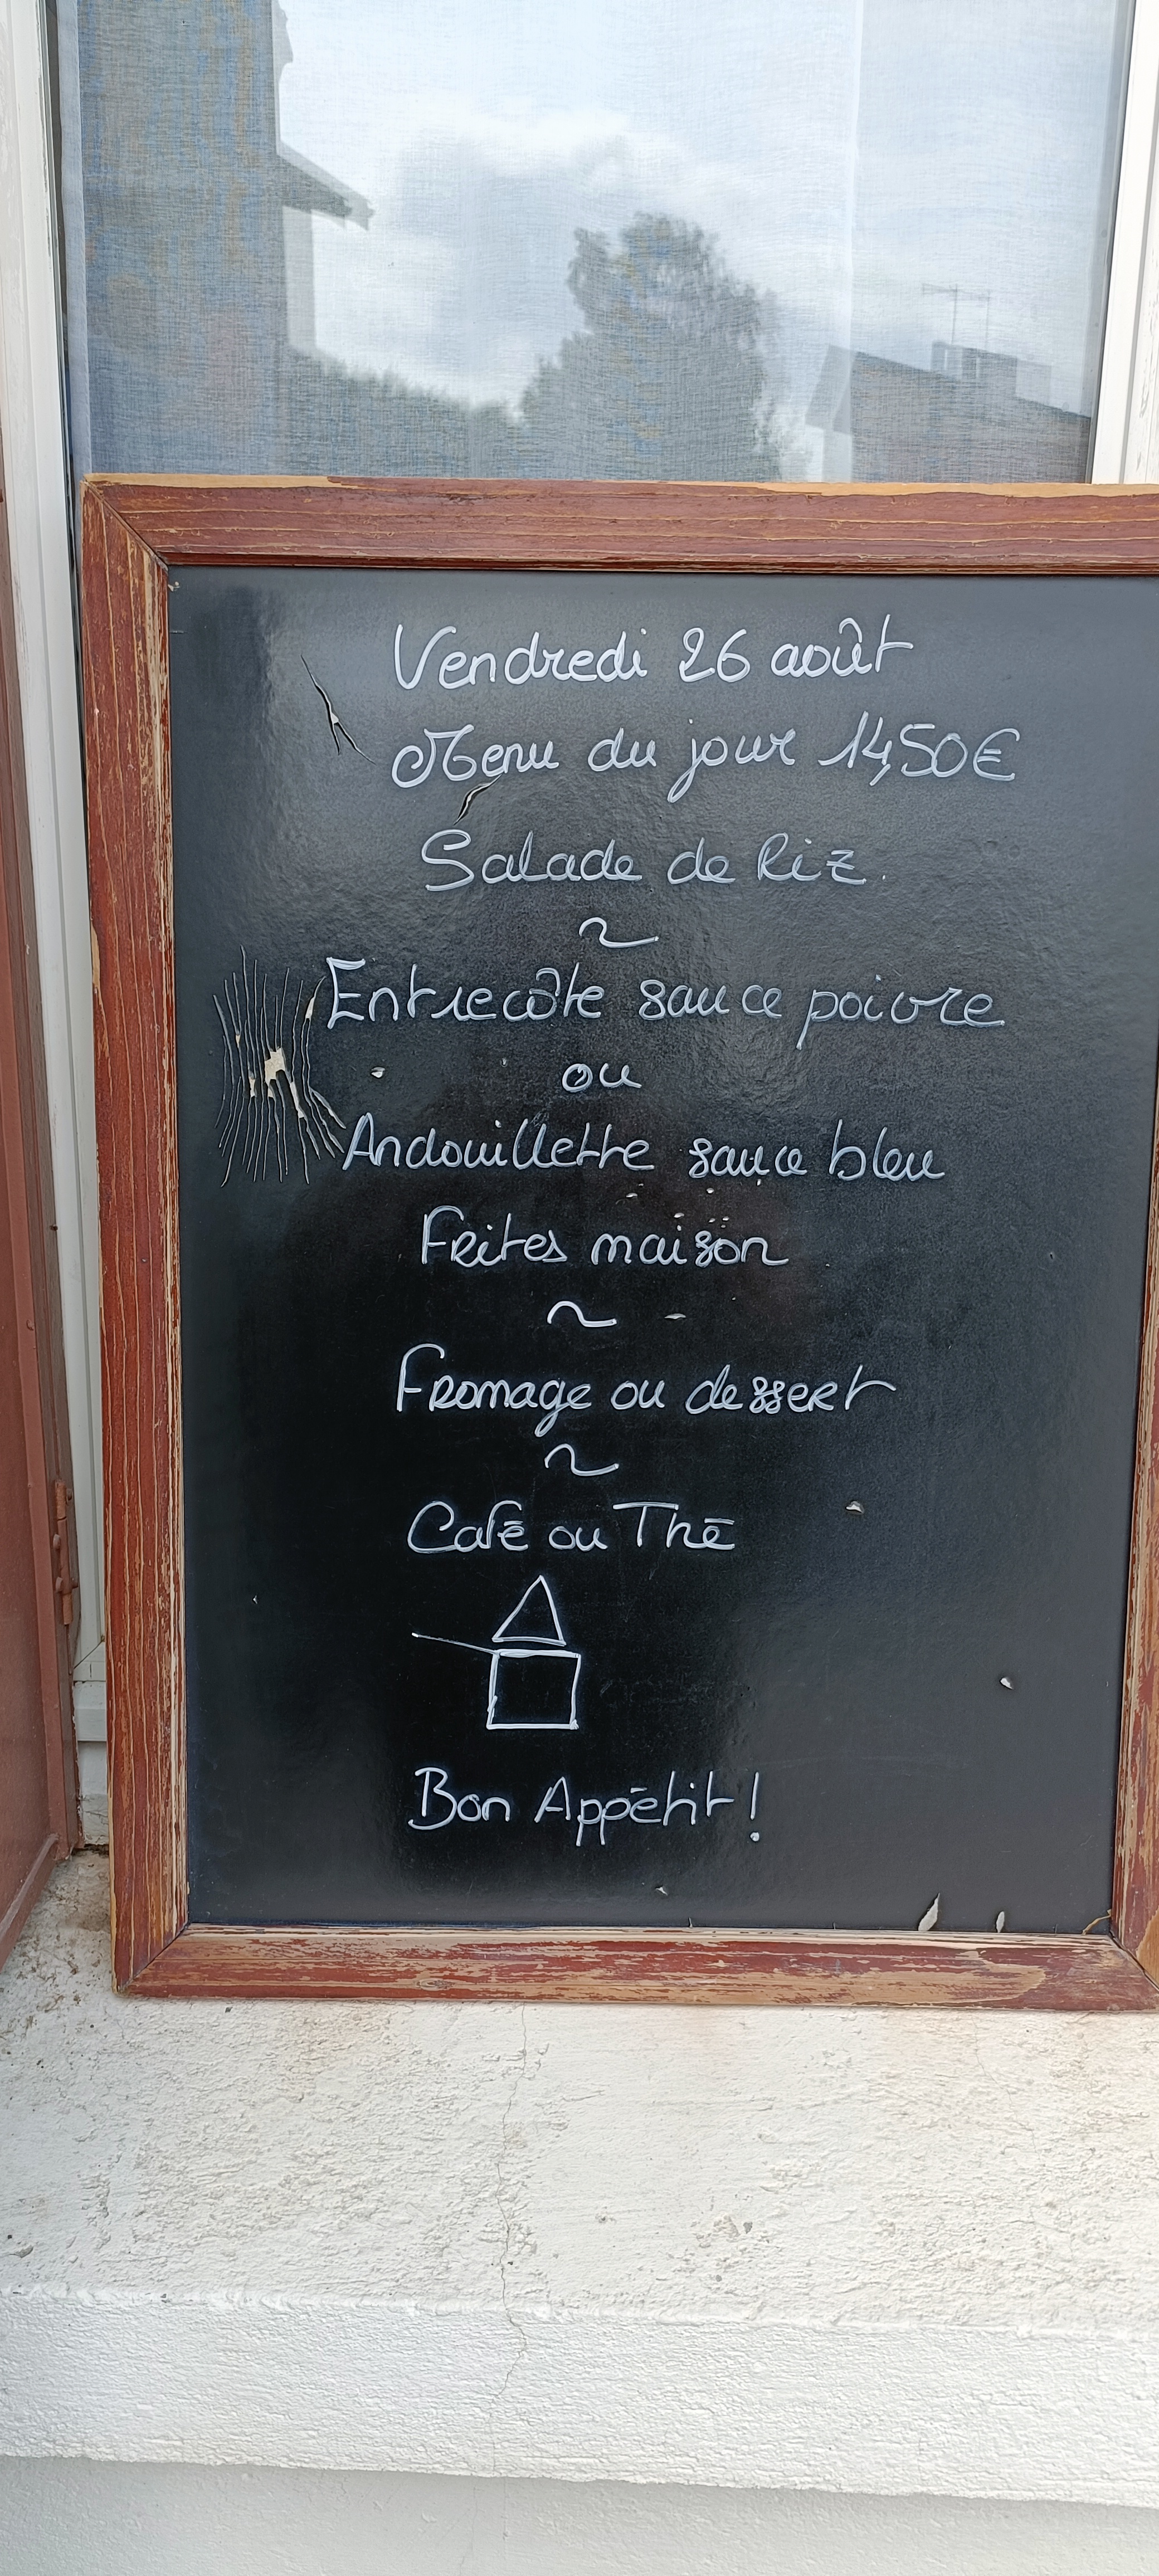 Vendredi 26 août
Menu du jour 14,50€
Salade de Riz.
~
Entrecôte sauce poivre
ou
Andouillette sauce bleu
Frites maison
~
Fromage ou dessert
~
Café ou Thé
Bon Appétit !